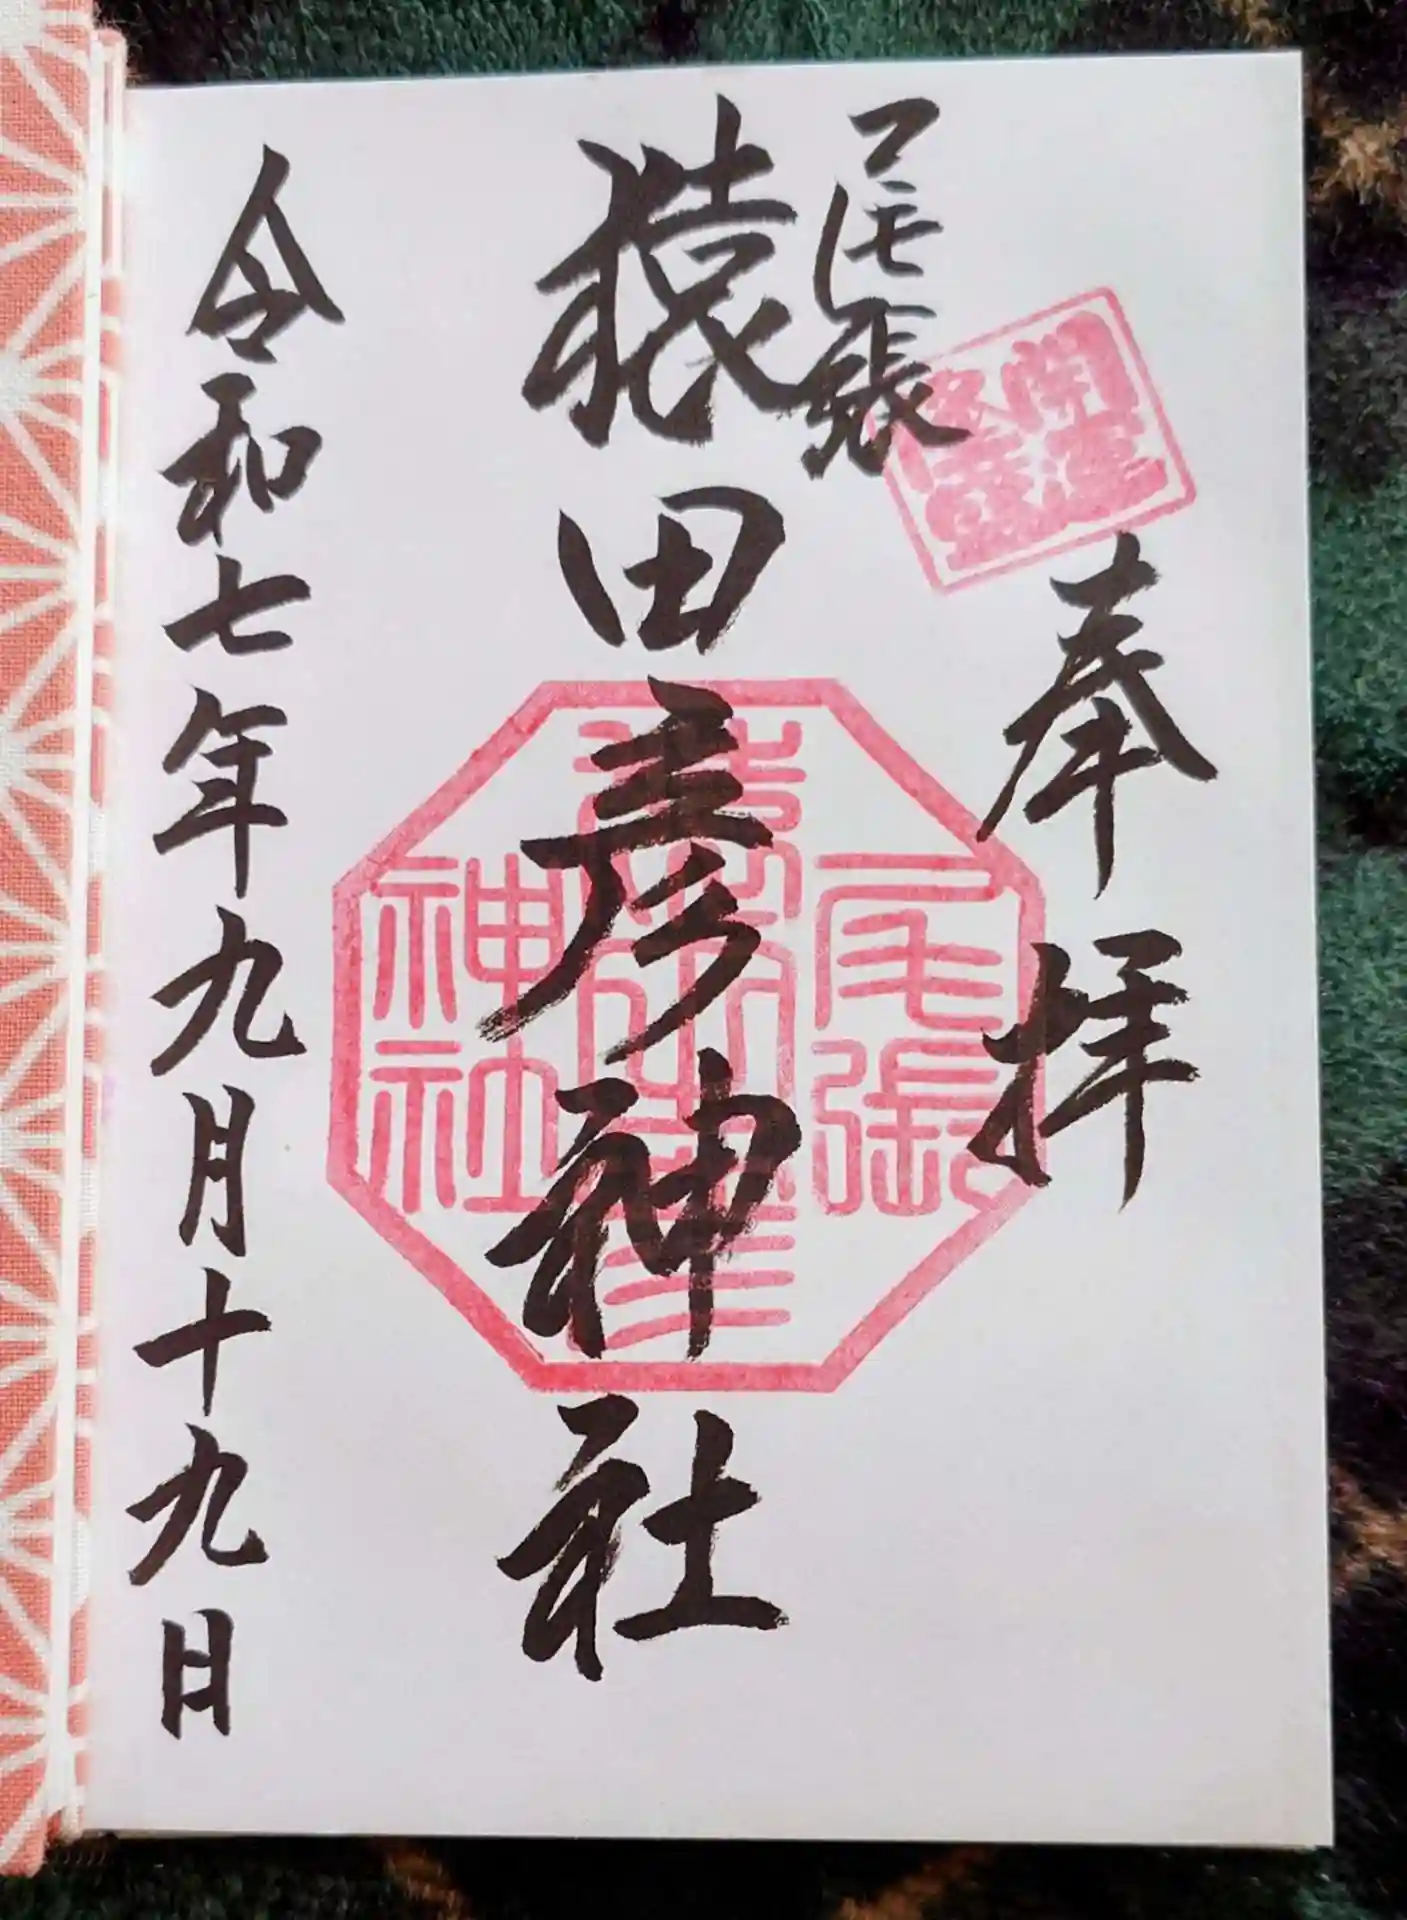 奉拝
尾張
猿田彦神社
令和七年九月十九日
開運
尾張
猿田彦
神社